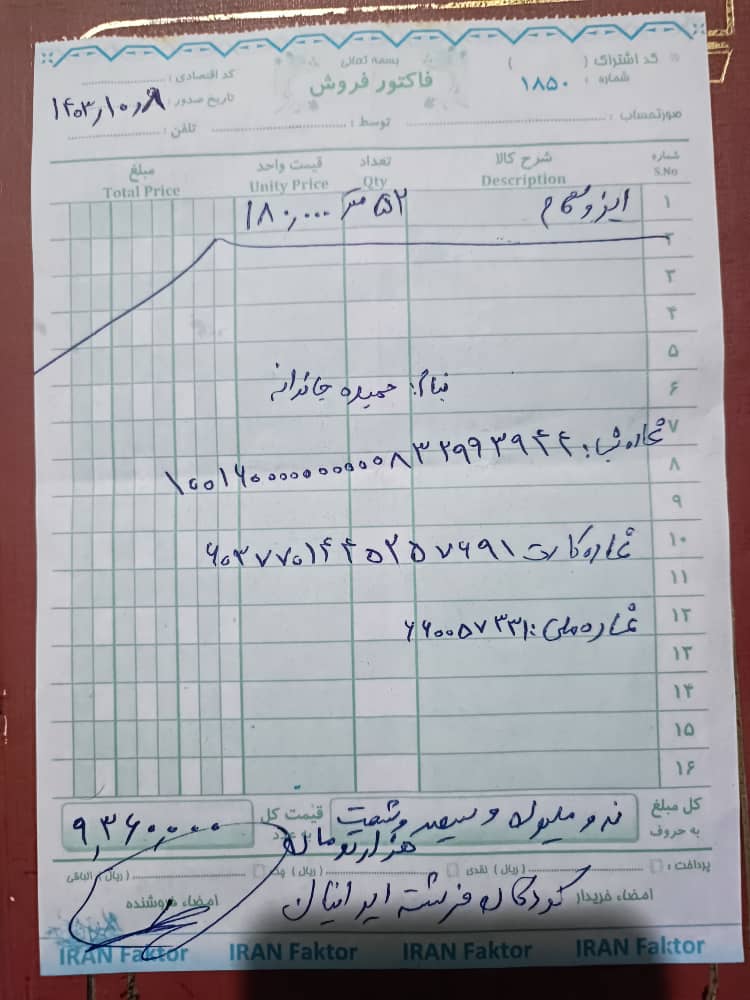 بسمه تعالی
کد اشتراک ( )
فاکتور فروش
کد اقتصادی :
شماره : ۱۸۵۰
تاریخ صدور : ۱۴۰۳,۱۰,۰۹
صورتحساب : توسط : تلفن :
شماره شرح کالا تعداد قیمت واحد مبلغ
S.No Description Qty Unity Price Total Price
۱ ایزوگام ۵۲ متر ۱۸۰,۰۰۰
۲
۳
۴
۵
۶ بنام: حمیده
۷ شماره شبا: ۱۰۰۱۶۰۰۰۰۰۰۰۰۰۰۰۸۳۲۹۹۳۹۴۴
۸
۹
۱۰ شماره کارت ۶۰۳۷۷۰۱۴۴۵۲۵۷۶۹۱
۱۱
۱۲ شماره ملی: ۶۶۰۰۵۷۳۳۱
۱۳
۱۴
۱۵
۱۶
کل مبلغ به حروف نه و ملیون و سیصد و شصت هزار تومان قیمت کل به عدد ۹,۳۶۰,۰۰۰
پرداخت : (ریال) نقدی (ریال) چک (ریال) الباقی
امضاء خریدار کودکان فرشته ایرانیان امضاء فروشنده
IRAN Faktor IRAN Faktor IRAN Faktor IRAN Faktor